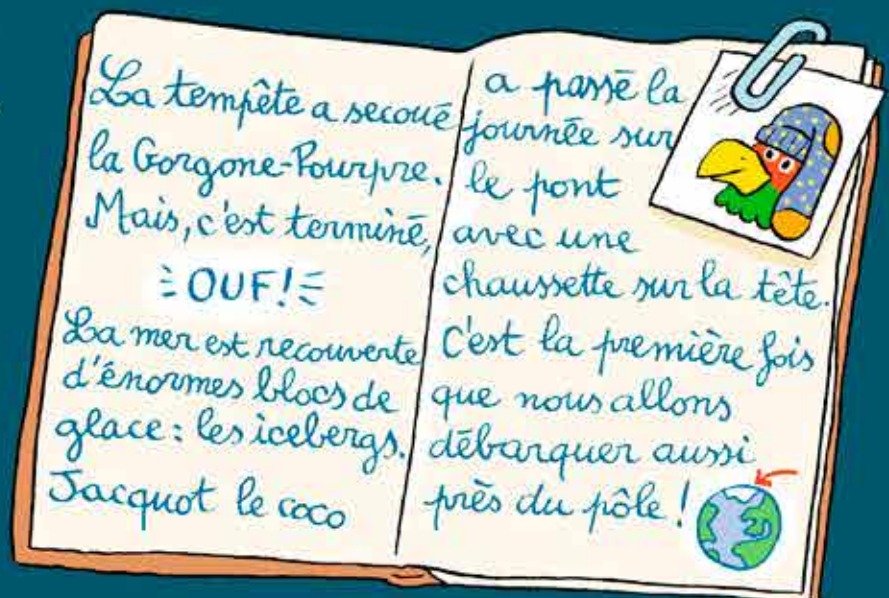 La tempête a secoué
la Gorgone-Pourpre.
Mais, c'est terminé,
OUF!
La mer est recouverte
d'énormes blocs de
glace : les icebergs.
Jacquot le coco
a passé la
journée sur
le pont
avec une
chaussette sur la tête.
C'est la première fois
que nous allons
débarquer aussi
près du pôle !